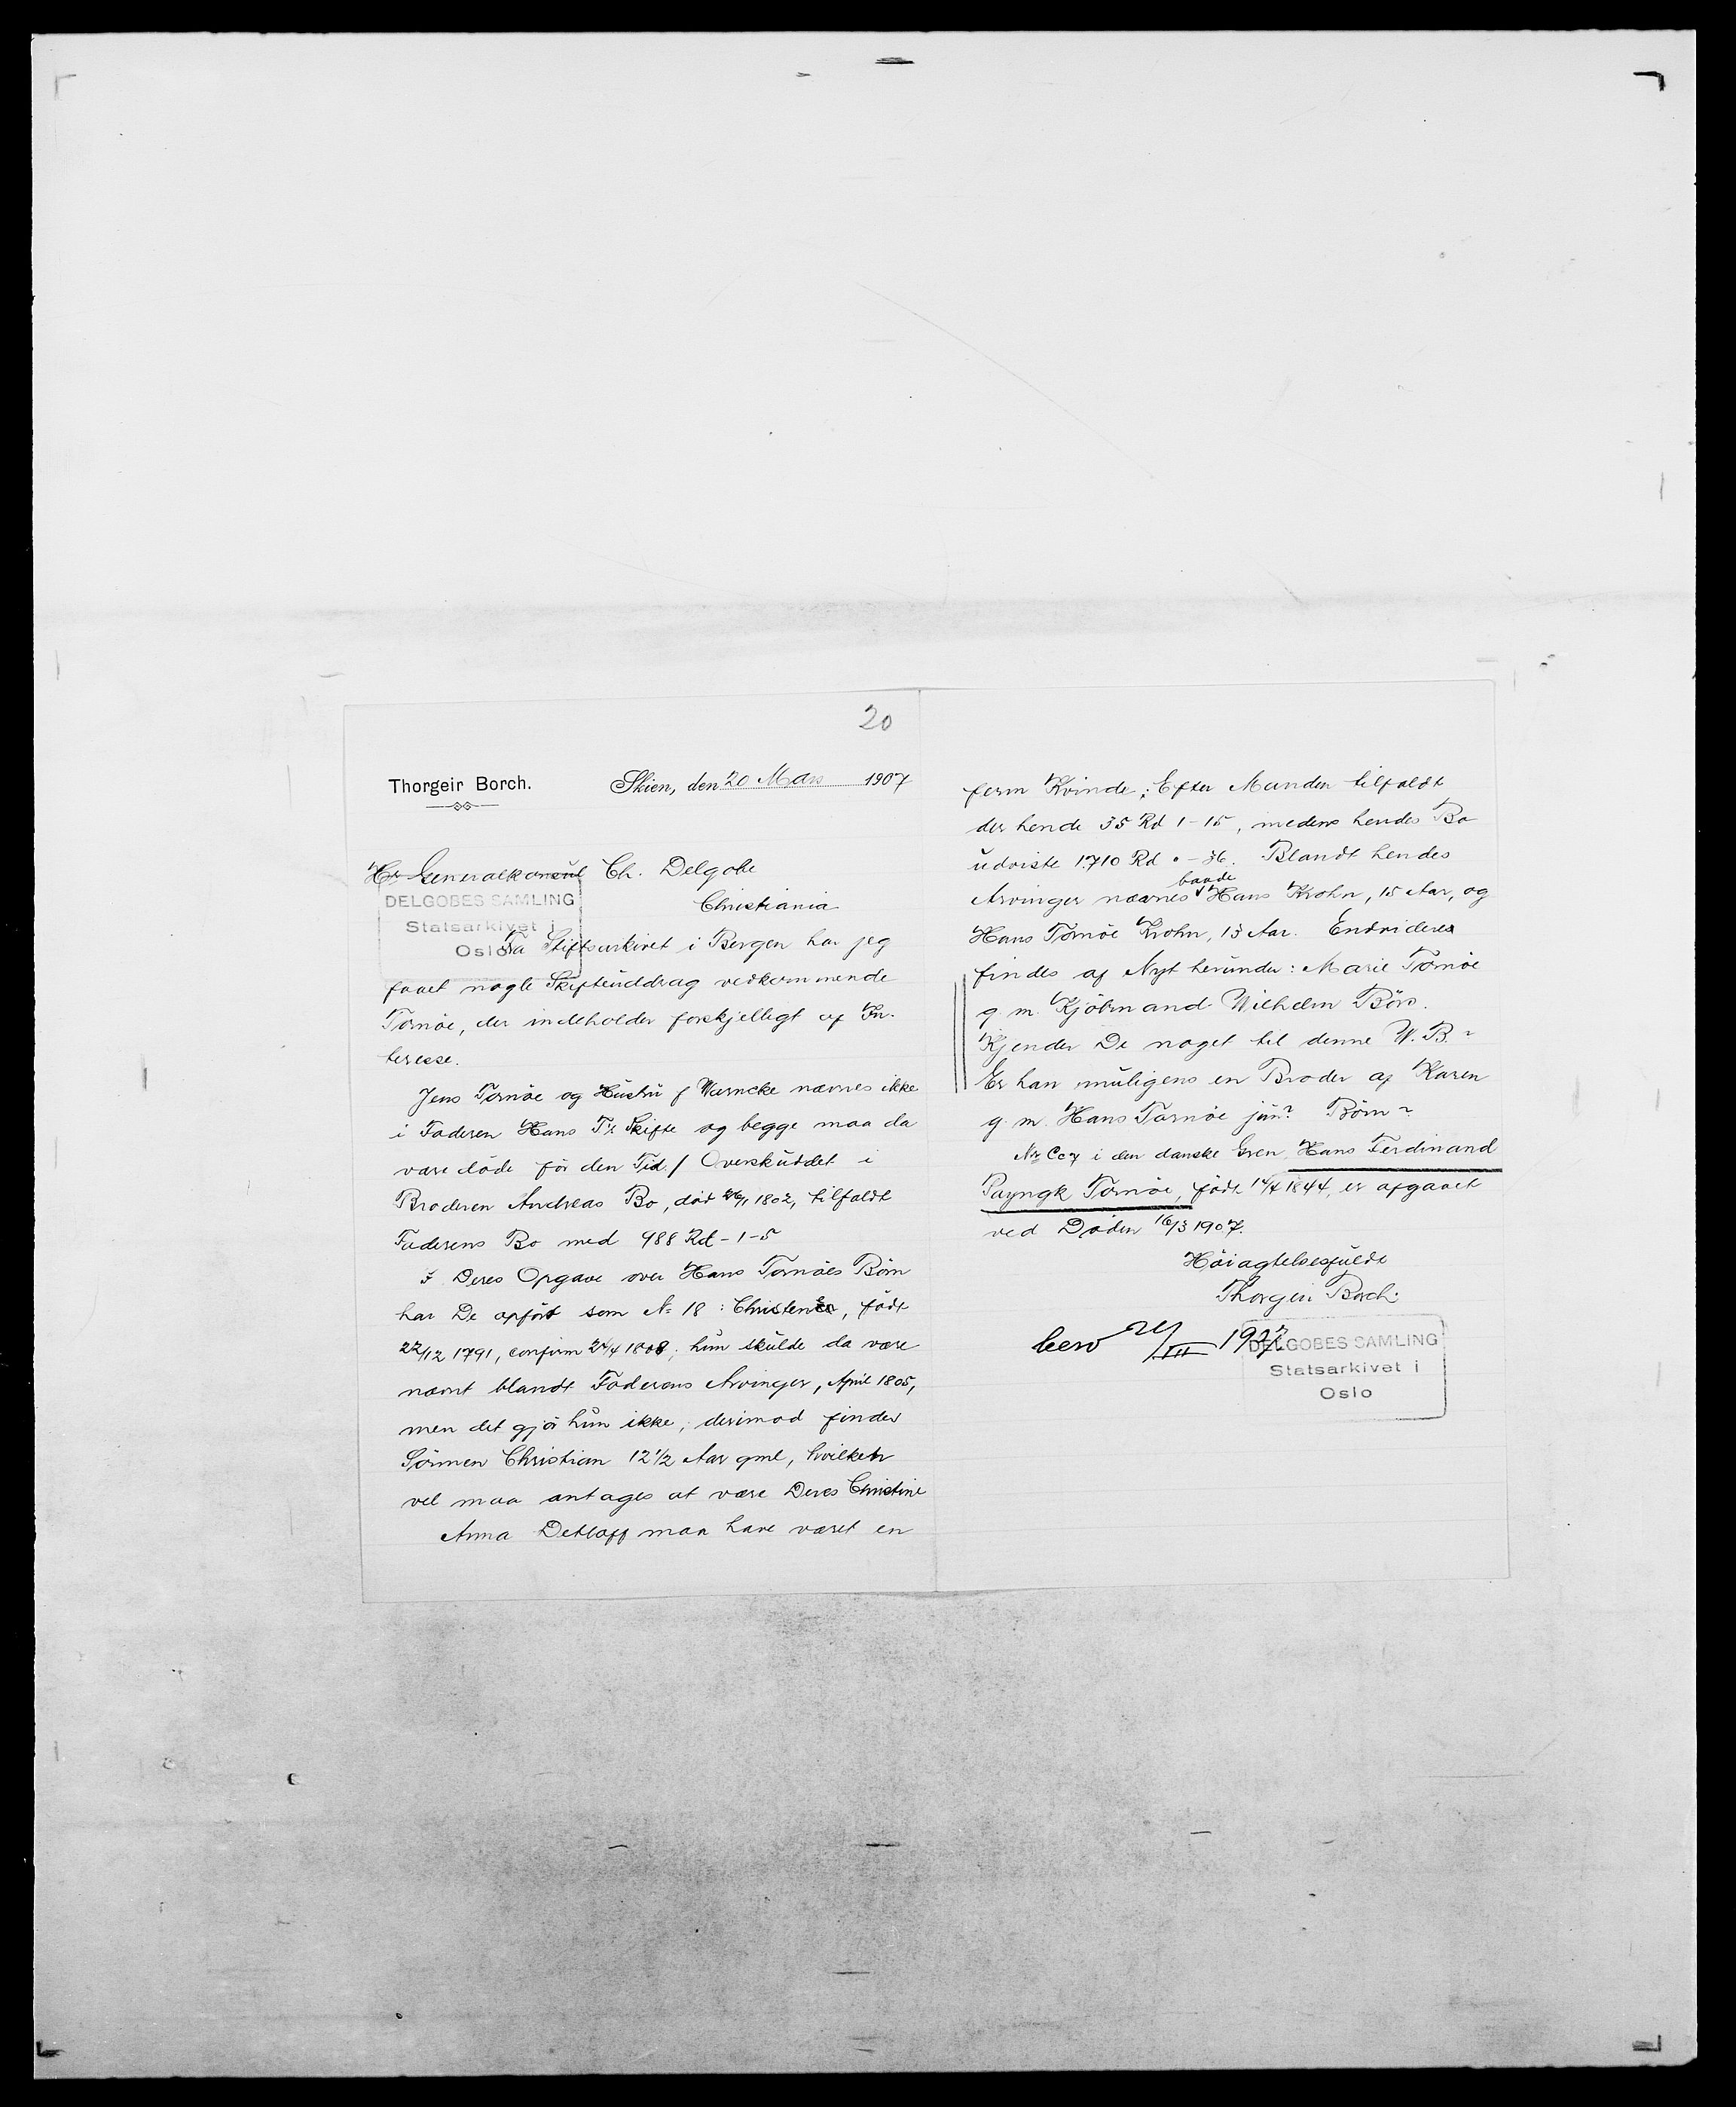 20
Thorgeir Borch.
Skien, den 20 Mars 1907
Hr Generalkonsul Ch. Delgobe
Christiania
DELGOBES SAMLING
Statsarkivet i
Oslo
Fra Stiftsarkivet i Bergen har jeg
faaet nogle Skifteuddrag vedkommende
Tornöe, der indeholder forskjelligt af In-
teresse.
Jens Tornöe og Hustru f Warncke nævnes ikke
i Faderen Hans T's Skifte og begge maa da
være döde för den Tid. / Overskuddet i
Broderen Andreas Bo, död 1802, tilfaldt
Faderens Bo med 988 Rd - 1 - 5
I Deres Opgave over Hans Tornöes Börn
har De opfört som No 18: Christen, födt
22/12 1791, confirm 24/4 1808; hun skulde da være
nævnt blandt Faderens Arvinger, April 1805,
men det gjör hun ikke; derimod findes
Sönnen Christian 12 1/2 Aar gml, hvilken
vel maa antages at være Deres Christine
Anna Detloff maa have været en
ferm Kvinde; Efter Manden tilfaldt
der hende 35 Rd 1 - 15, medens hendes Bo
udviste 1710 Rd
Blandt hendes
Arvinger nævnes baade Hans Krohn, 15 Aar, og
Hans Tornöe Krohn, 13 Aar. Endvidere
findes af Nyt herunder: Marie Tornöe
g. m. Kjöbmand Wilhelm Börs.
Kjender De noget til denne W. B. ?
Er han muligens en Broder af Karen
g. m. Hans Tornöe jun? Börn ?
Nr Cc7 i den danske Gren, Hans Ferdinand
Payngk Tornöe, födt 14/4 1844, er afgaaet
ved Döden 16/3 1907.
Höiagtelsesfuldt
Thorgeir Borch.
besv 21/III 1907
DELGOBES SAMLING
Statsarkivet i
Oslo